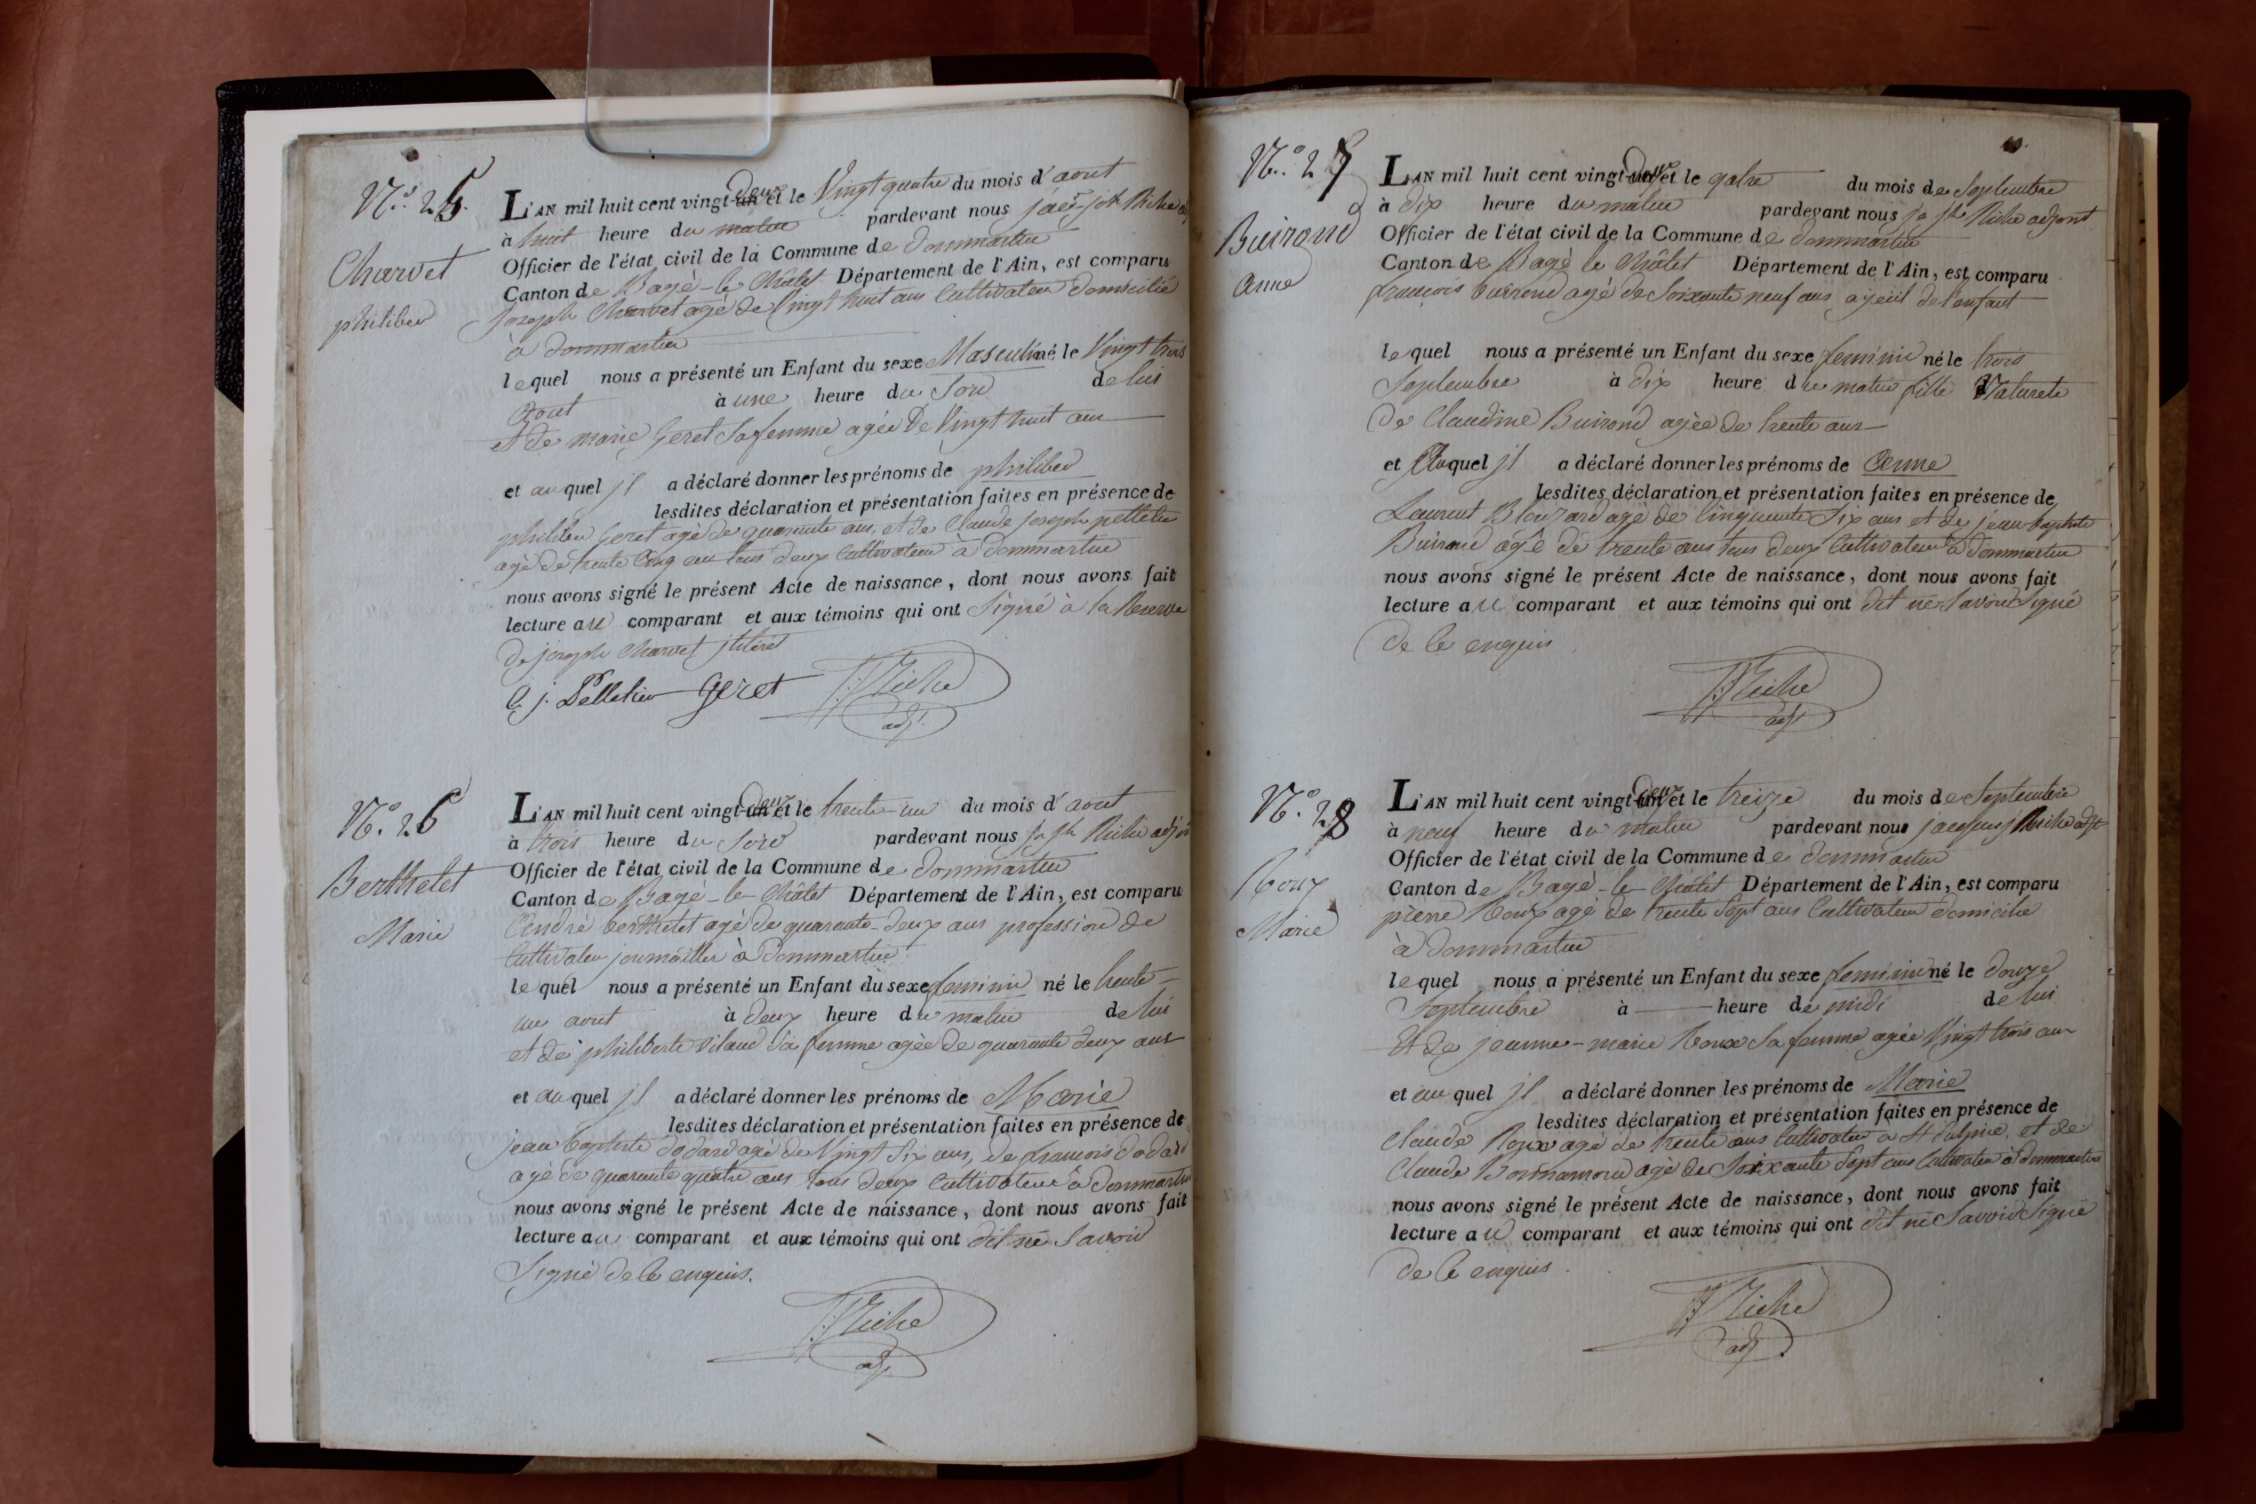 N.° 25.
Charvet
philiber
L'AN mil huit cent vingt-un deux et le Vingt quatre du mois d'aout
à huit heure du matin pardevant nous jacq-jph Riche adj
Officier de l'état civil de la Commune de dommartin
Canton de Bagé-le Châlet Département de l'Ain, est comparu
joseph Charvet agé de Vingt huit ans Cultivateur domicilié
à dommartin
lequel nous a présenté un Enfant du sexe Masculin né le Vingt trois
aout à une heure du Soir de lui
et de marie Geret Sa femme agée de Vingt huit ans
et auquel jl a déclaré donner les prénoms de philiber
lesdites déclaration et présentation faites en présence de
philiber Geret agé de quarante ans, et de Claude joseph pelletier
agé de trente Cinq ans tous deux Cultivateur à dommartin
nous avons signé le présent Acte de naissance, dont nous avons fait
lecture au comparant et aux témoins qui ont Signé à la Reserve
de joseph Charvet jlliteré
C. j. Pelletier Geret Riche
adj.
N.° 26
Berthelet
Marie
L'AN mil huit cent vingt-un deux et le trente-un du mois d'aout
à trois heure du Soir pardevant nous jq jph Riche adjoi
Officier de l'état civil de la Commune de dommartin
Canton de Bagé-le-Châlet Département de l'Ain, est comparu
André berthelet agé de quarante-deux ans profession de
Cultivateur journaillier à Dommartin
lequel nous a présenté un Enfant du sexe feminin né le trente-
un aout à deux heure du matin de lui
et de philiberte vilaud Sa femme agée de quarante deux ans
et auquel jl a déclaré donner les prénoms de Marie
lesdites déclaration et présentation faites en présence de
jean baptiste dodard agé de Vingt Six ans, de francois dodard
agé de quarante quatre ans tous deux Cultivateur à dommartin
nous avons signé le présent Acte de naissance, dont nous avons fait
lecture au comparant et aux témoins qui ont dit ne Savoir
Signé de le enquis.
Riche
adj.
N.° 27
Buirond
anne
L'AN mil huit cent vingt-un deux et le qatre du mois de Septembre
à dix heure du matin pardevant nous jq jph Riche adjoint
Officier de l'état civil de la Commune de dommartin
Canton de Bagé le Châlet Département de l'Ain, est comparu
françois buirond agé de Soixante neuf ans ayeuil de l'enfant
lequel nous a présenté un Enfant du sexe feminin né le trois
Septembre à dix heure du matin fille Naturele
de Claudine Buirond agée de trente ans
et Auquel jl a déclaré donner les prénoms de Anne
lesdites déclaration et présentation faites en présence de
Laurent Blouzard agé de Cinquante Six ans et de jean baptiste
Buirond agé de trente ans tous deux Cultivateur à dommartin
nous avons signé le présent Acte de naissance, dont nous avons fait
lecture au comparant et aux témoins qui ont dit ne Savoir Signé
de le enquis
Riche
adj.
N.° 28
Roux
Marie
L'AN mil huit cent vingt-un deux et le treize du mois de Septembre
à neuf heure du matin pardevant nous jacques j Riche adjt
Officier de l'état civil de la Commune de dommartin
Canton de Bagé-le Châlet Département de l'Ain, est comparu
pierre Roux agé de trente Sept ans Cultivateur domicilié
à dommartin
lequel nous a présenté un Enfant du sexe feminin né le douze
Septembre à — heure de midi de lui
Et de jeanne-marie Roux Sa femme agée Vingt trois ans
et auquel jl a déclaré donner les prénoms de Marie
lesdites déclaration et présentation faites en présence de
Claude Roux agé de trente ans Cultivateur à St Sulpice, et de
Claude Bonnamour agé de Soixante Sept ans Cultivateur à dommartin
nous avons signé le présent Acte de naissance, dont nous avons fait
lecture au comparant et aux témoins qui ont dit ne Savoir Signé
de le enquis.
Riche
adj.